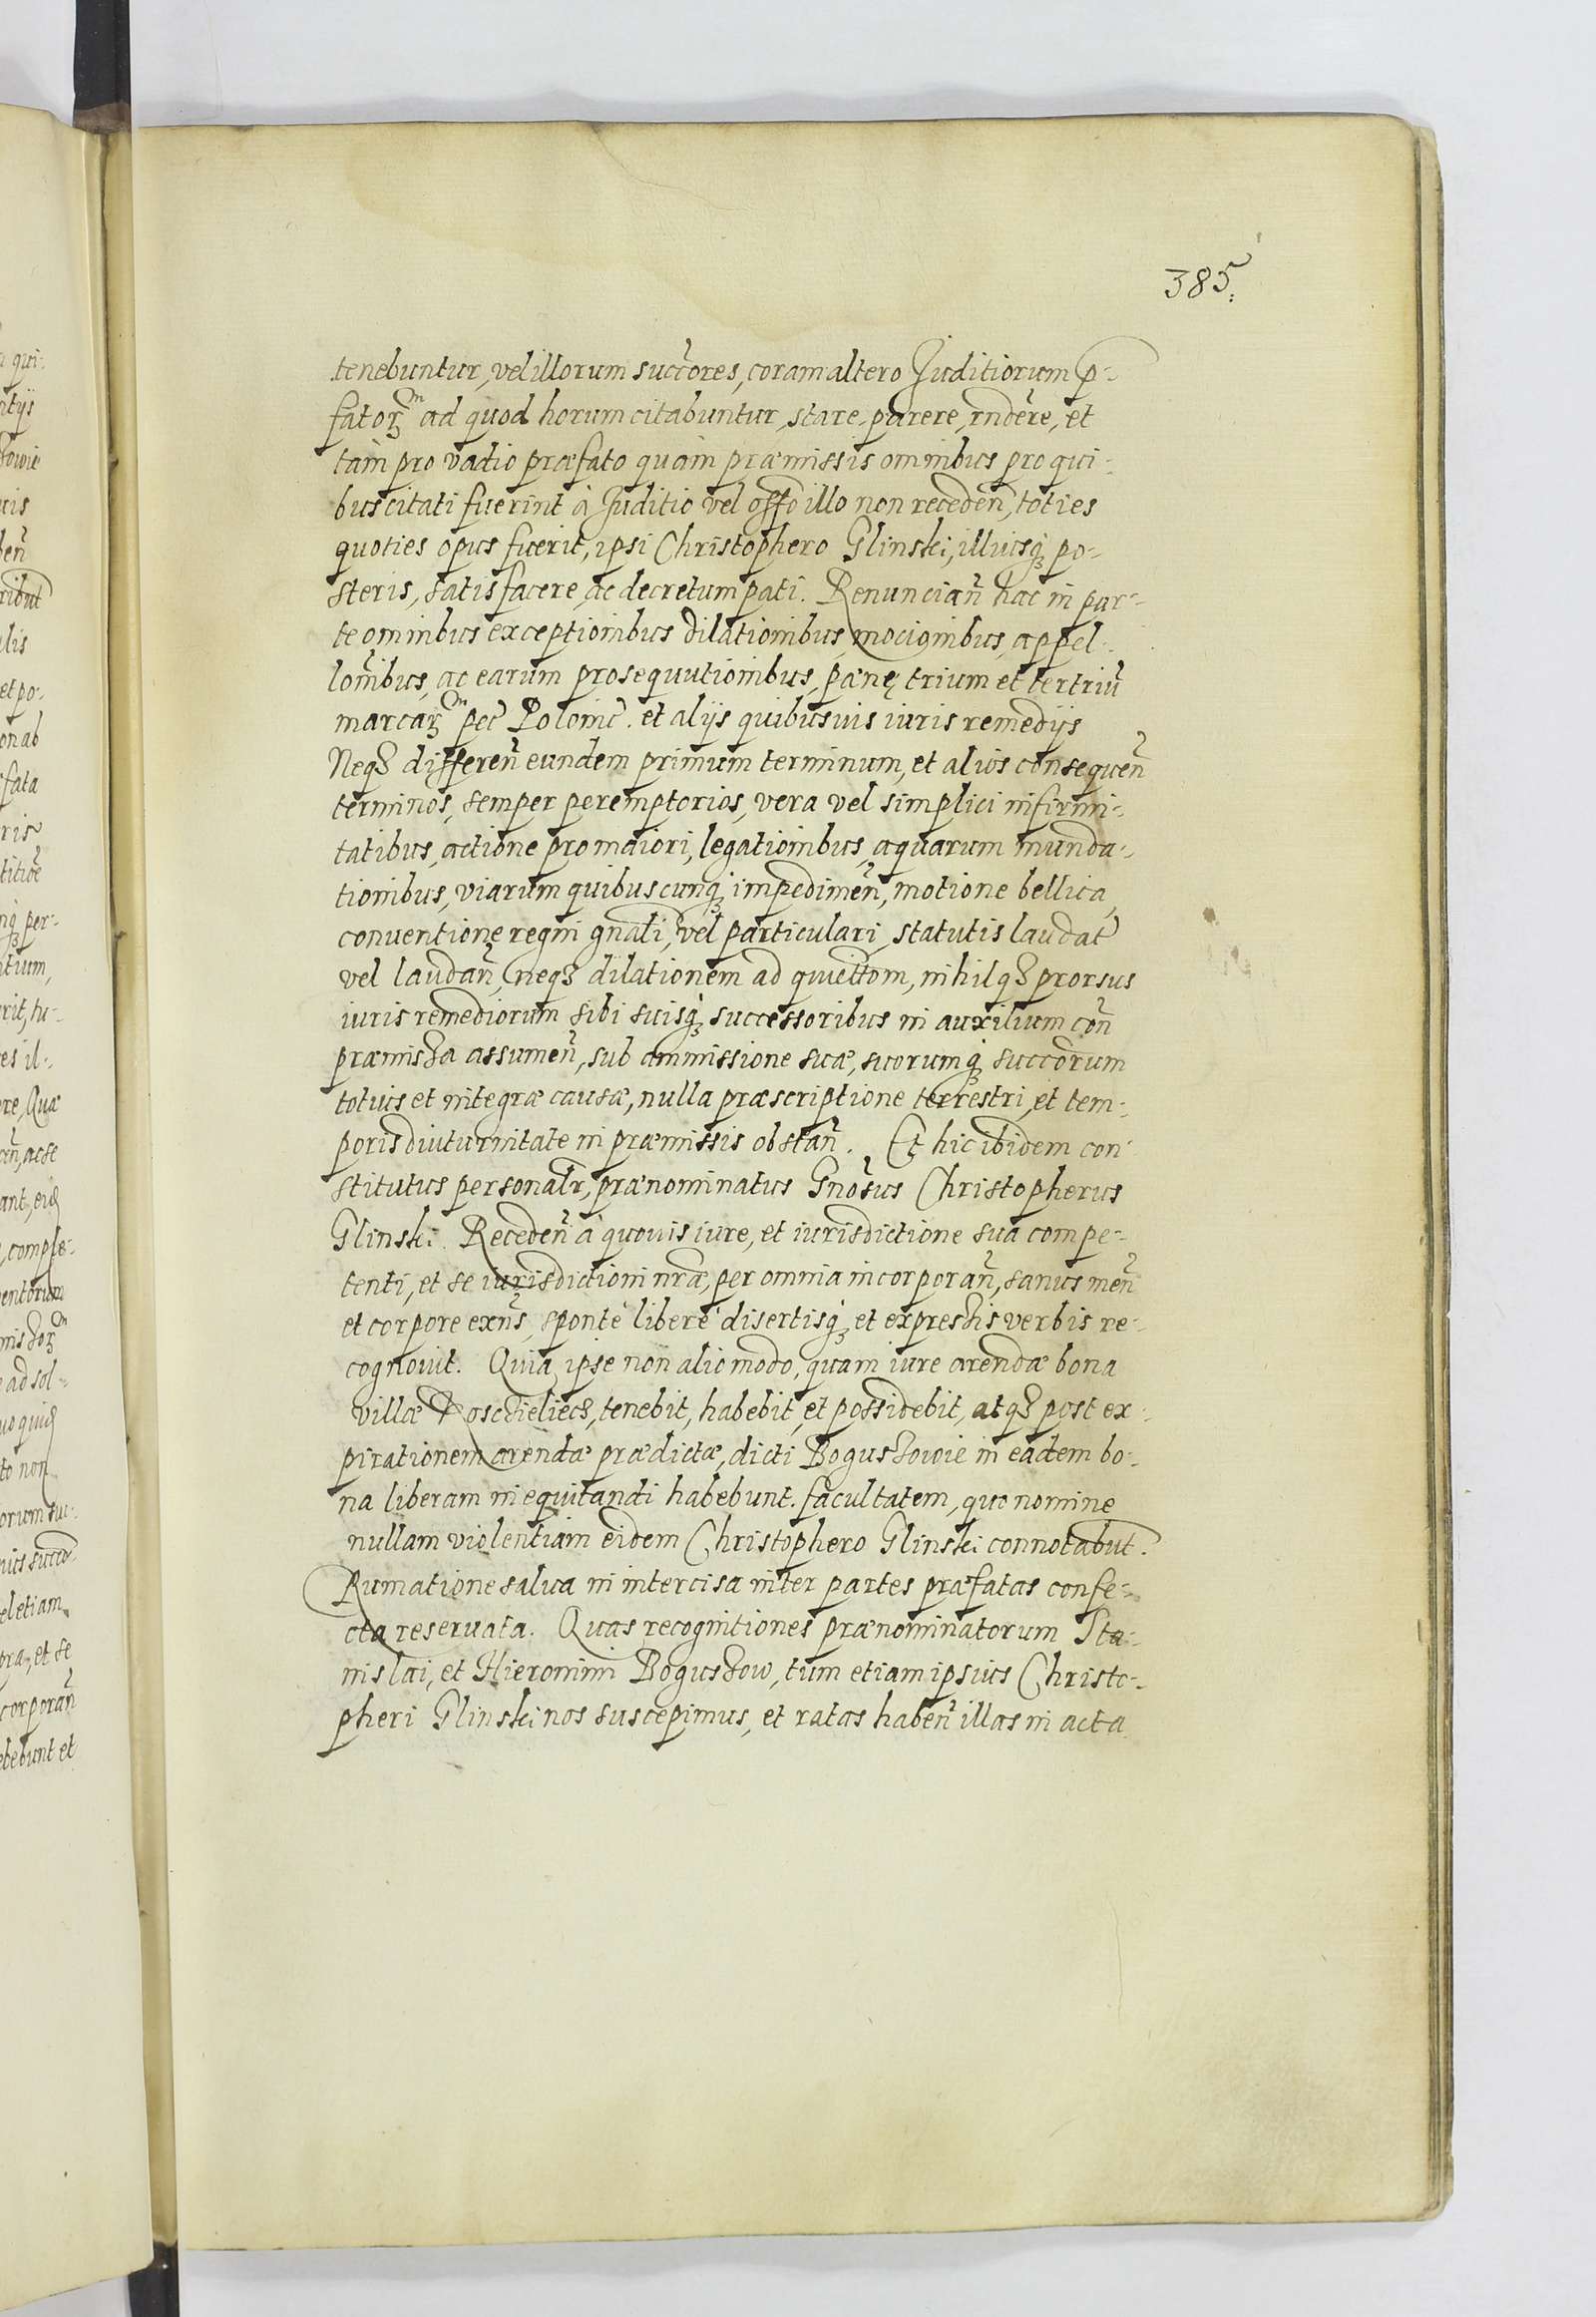 385.
tenebuntur, vel illorum succores, coram altero Juditiorum p-
fatorꝫ ad quod horum citabuntur, stare, parere, rndere, et
tàm pro vadio præfato quàm præmissis omnibus pro qui-
bus citati fuerint à Juditio vel offo illo non receden̄, toties
quoties opus fuerit, ipsi Christophero Glinski, illiusqꝫ po-
steris, satisfacere, ac decretum pati. Renuncian̄ hac in par-
te omnibus exceptionibus dilationibus, mocionibus, appel-
lōnibus, ac earum prosequutionibus, pænę trium et tertriū
marcarꝫ pec Polonic. et alijs quibusvis iuris remedijs
Neqꝫ differen̄ eundem primum terminum, et alios consequen̄
terminos, semper peremptorios, vera vel simplici infirmi-
tatibus, actione pro maiori, legationibus, aquarum inunda-
tionibus, viarum quibuscunqꝫ impedimen̄, motione bellica,
conventione regni gnali, vel particulari, statutis laudat
vel laudan̄, neqꝫ dilationem ad quiettom, nihilqꝫ prorsus
iuris remediorum sibi suisqꝫ successoribus in auxilium con̄
præmissa assumen̄, sub ammissione suæ, suorumqꝫ succorum
totius et integræ causæ, nulla præscriptione terrestri, et tem-
poris diuturnitate in præmissis obstan̄. Et hic ibidem con-
stitutus personalr, prænominatus Gnosus Christopherus
Glinski. Receden̄ à quovis iure, et iurisdictione sua compe-
tenti, et se iurisdictioni nræ, per omnia incorporan̄, sanus men̄
et corpore exn̄s, sponte libere disertisqꝫ et expressis verbis re-
cognovit. Quia ipse non alio modo, quam iure arendæ bona
villæ tenebit, habebit, et possidebit, atqꝫ post ex-
pirationem arendæ prædictæ, dicti Boguszowie in eadem bo-
na liberam inequitandi habebunt facultatem, quo nomine
nullam violentiam eidem Christophero Glinski connotabut.
Rumatione salva in intercisa inter partes præfatas confe-
cta reservata. Quas recognitiones prænominatorum Sta-
nislai, et Hieronimi Boguszow, tum etiam ipsius Christo-
pheri Glinski nos suscepimus, et ratas haben̄ illas in acta